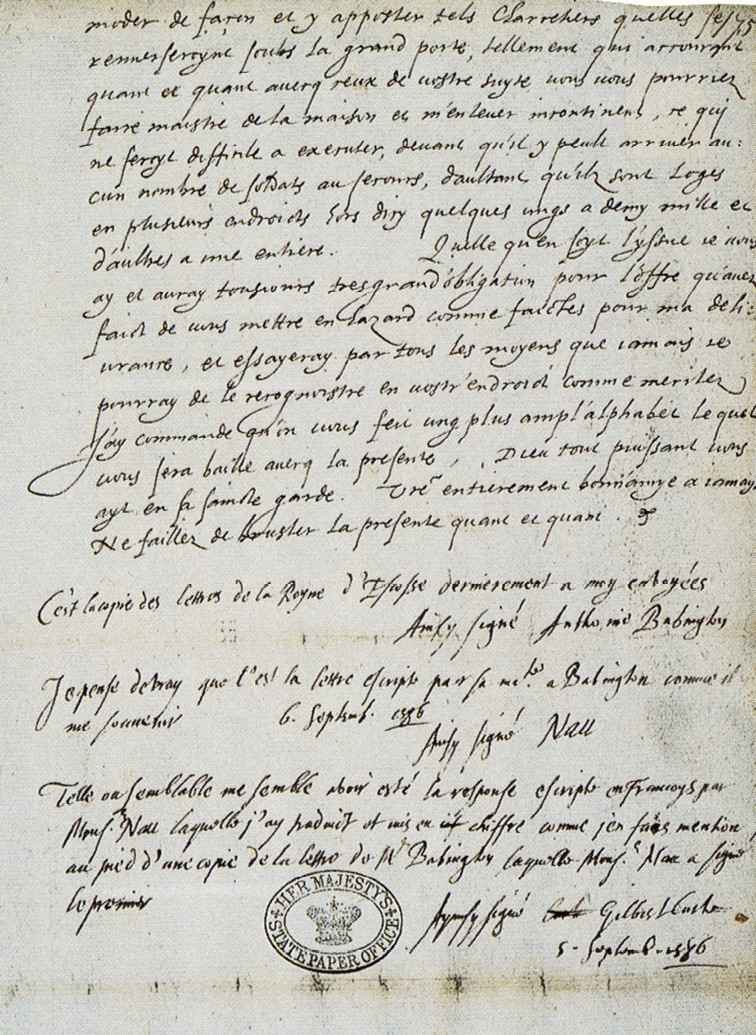 moder de façon et y apposter tels Charretiers quelles
renverseroynt soubs la grand porte, tellement qui accourant
quant et quant avecq ceux de vostre suyte vous vous pourriez
faire maistre de la maison et m'enlever incontinent, ce qui
ne seroyt difficile a executer, devant qu'il y peult arriver au:
cun nombre de soldats au secours, d'aultant qu'ilz sont loges
en plusieurs endroicts hors dicy quelques ungs a demy mille et
d'aultres a une entiere. Quelle qu'en soyt l'yssue ie vous
ay et auray tousiours tresgrand'obligation pour l'offre qu'avez
faict de vous mettre en hazard comme faictes pour ma deli:
vrance, et essayeray par tous les moyens que iamais ie
pourray de le recognoistre en vostr'endroict comme meritez
J'ay commande qu'on vous feit ung plus ampl'alphabet lequel
vous sera baille avecq la presente, Dieu tout puissant vous
ayt en sa saincte garde. Vre entierement bonn'amye a iamay,
Ne faillez de brusler la presente quant et quant
C'est la copie des lettres de la Royne d'Escosse dernierement a moy envoyées
Ainsy signé Anthonie Babington
Je pense de vray que c'est la lettre escripte par sa ma.te a Babington comme il
me souvenir 6. Septemb. 1586
Ainsy signé Nau
Telle ou semblable me semble avoir esté la response escripte en francoys par
Mons.r Nau laquelle j'ay traduict et mis en chiffre comme j'en fais mention
au pied d'une copie de la lettre de Mr Babington laquelle Mons.r Nau a signé
le premier
Aynsy signé Gilbert Curle
5. Septemb. 1586
HER MAJESTY'S
STATE PAPER OFFICE